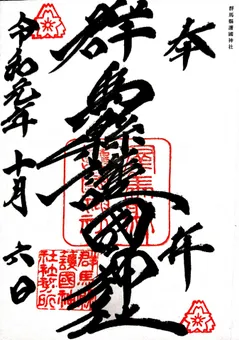 群馬縣護國神社
奉拝
群馬縣護國神社
令和元年十月六日
群馬縣
護國神社
社務所